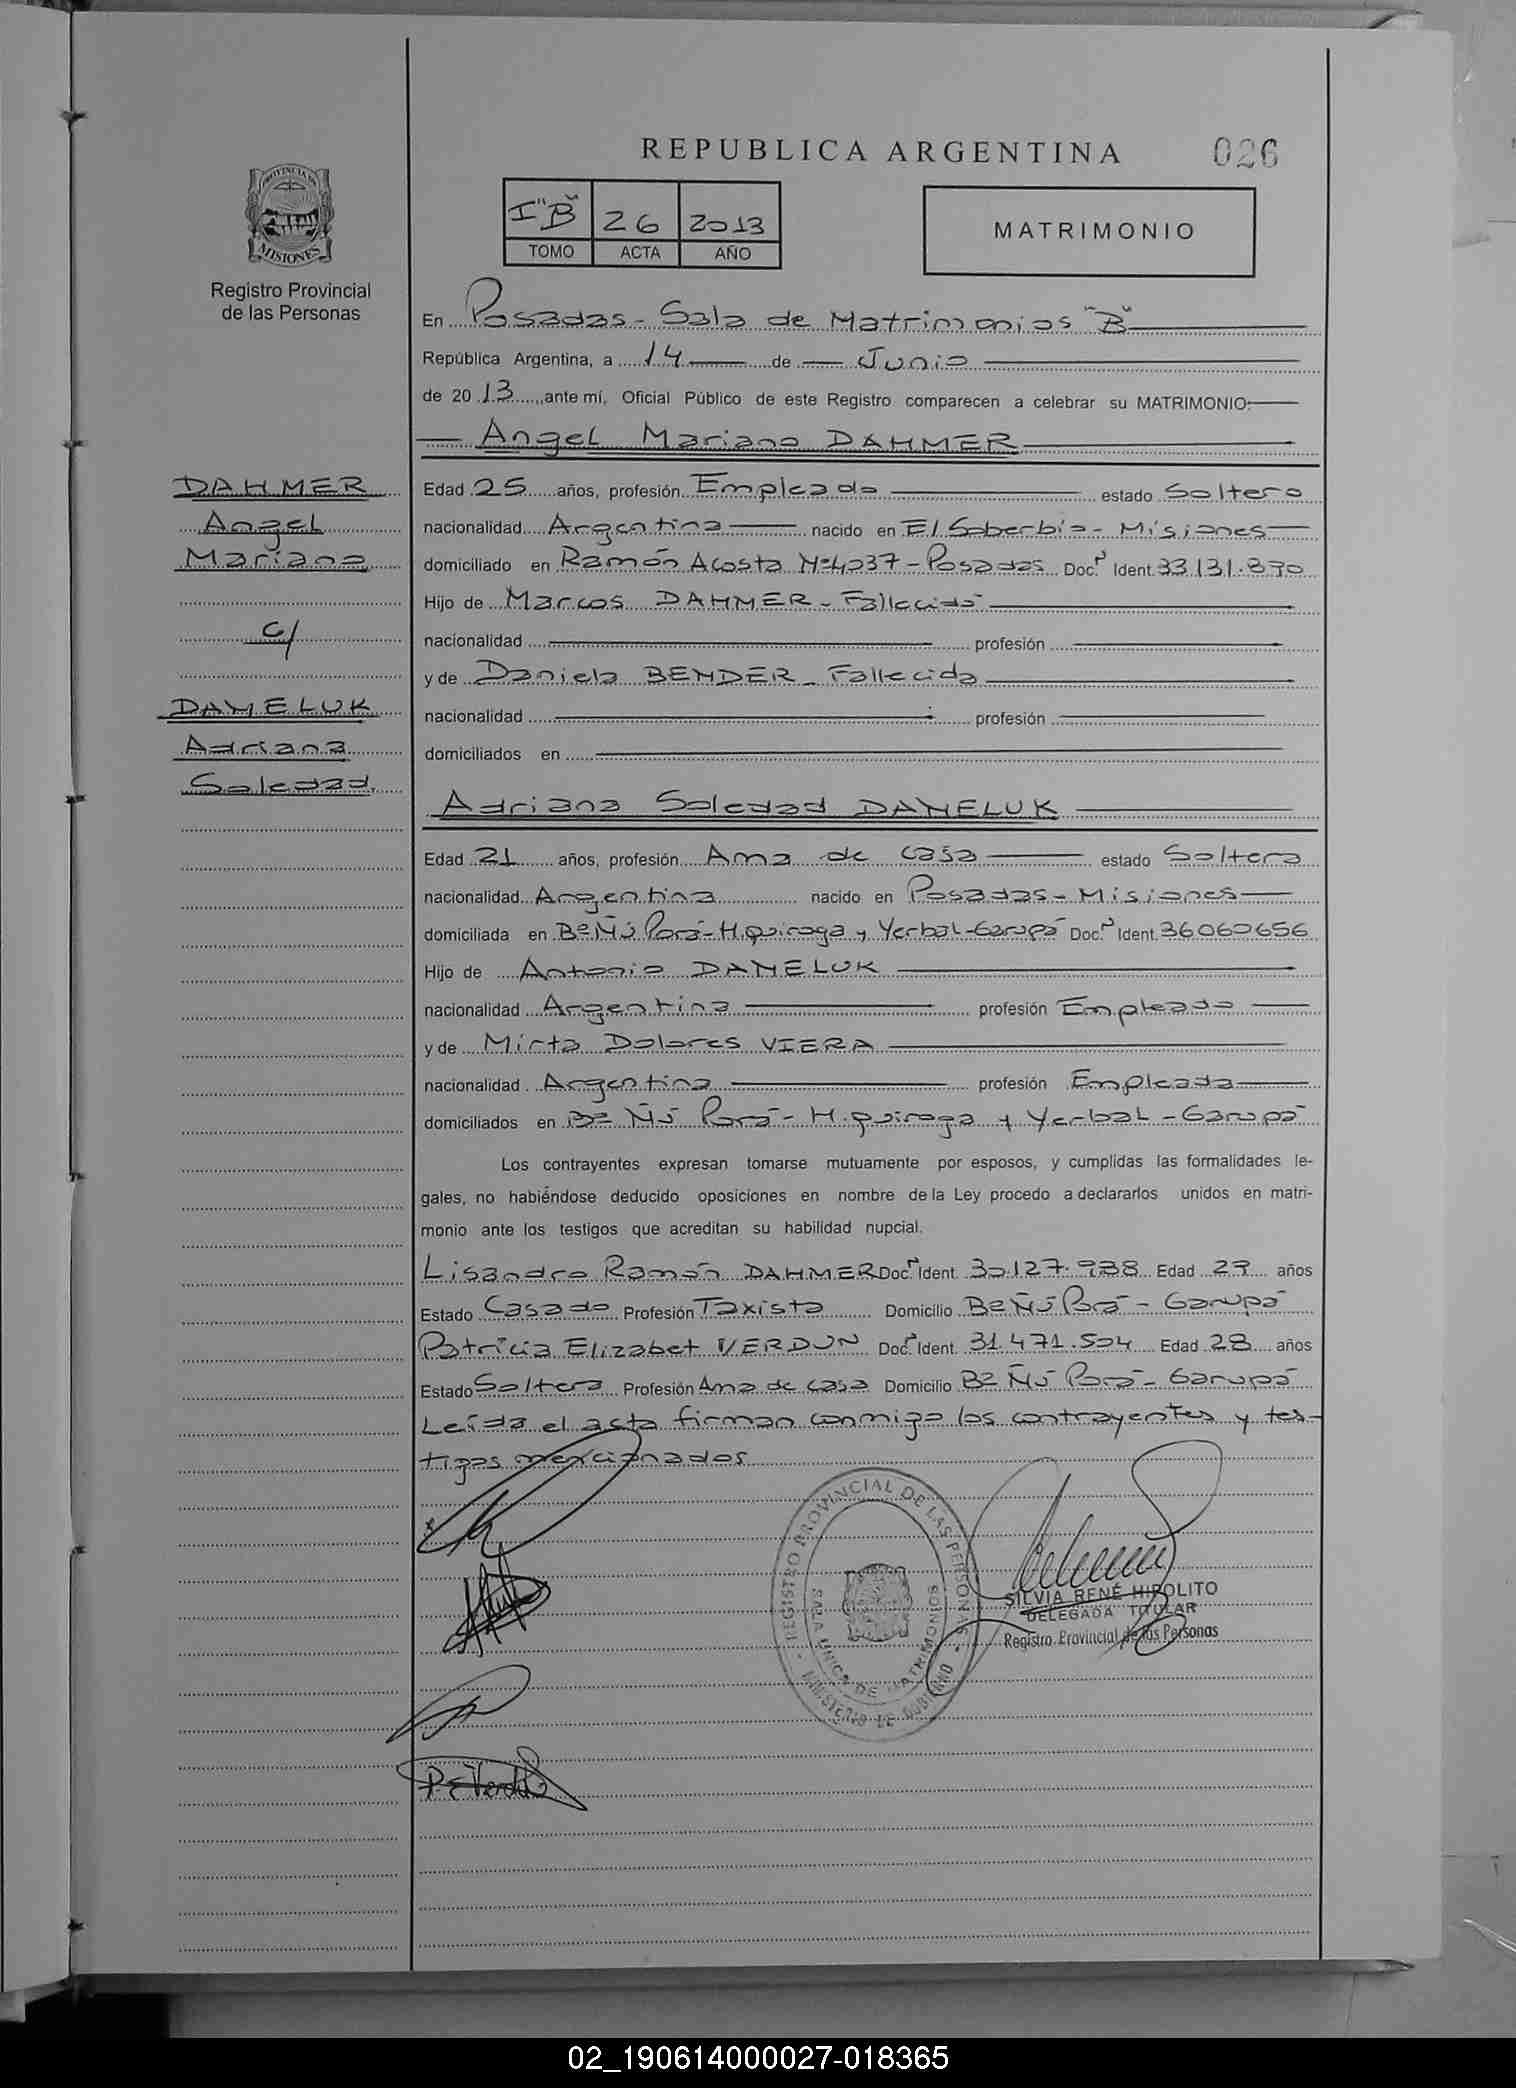 REPUBLICA ARGENTINA
026
PROVINCIA DE MISIONES
Registro Provincial
de las Personas
I "B" 26 2013
TOMO ACTA AÑO
MATRIMONIO
En Posadas - Sala de Matrimonios "B"
República Argentina, a 14 de Junio
de 2013, ante mí, Oficial Público de este Registro comparecen a celebrar su MATRIMONIO:
Angel Mariano DAHMER
DAHMER
Angel
Mariano
c/
DANELUK
Adriana
Soledad
Edad 25 años, profesión Empleado estado Soltero
nacionalidad Argentina nacido en El Soberbio - Misiones
domiciliado en Ramón Acosta Nº4037 - Posadas Doc. Ident. 33.131.870
Hijo de Marcos DAHMER - Fallecido
nacionalidad profesión
y de Daniela BENDER - Fallecida
nacionalidad profesión
domiciliados en
Adriana Soledad DANELUK
Edad 21 años, profesión Ama de casa estado Soltera
nacionalidad Argentina nacido en Posadas - Misiones
domiciliada en Bº Ñú Porá - H. quiroga y Yerbal - Garupá Doc. Ident. 36060656
Hijo de Antonio DANELUK
nacionalidad Argentina profesión Empleado
y de Mirta Dolores VIERA
nacionalidad Argentina profesión Empleada
domiciliados en Bº Ñú Porá - H. quiroga y Yerbal - Garupá
Los contrayentes expresan tomarse mutuamente por esposos, y cumplidas las formalidades le-
gales, no habiéndose deducido oposiciones en nombre de la Ley procedo a declararlos unidos en matri-
monio ante los testigos que acreditan su habilidad nupcial.
Lisandro Ramón DAHMER Doc. Ident. 30.127.938 Edad 29 años
Estado Casado Profesión Taxista Domicilio Bº Ñú Porá - Garupá
Patricia Elizabet VERDUN Doc. Ident. 31.471.504 Edad 28 años
Estado Soltera Profesión Ama de casa Domicilio Bº Ñú Porá - Garupá
Leída el acta firman conmigo los contrayentes y tes-
tigos mencionados
REGISTRO PROVINCIAL DE LAS PERSONAS
SALA UNICA DE MATRIMONIOS
MINISTERIO DE GOBIERNO
SILVIA RENÉ HIPOLITO
DELEGADA TITULAR
Registro Provincial de las Personas
02_190614000027-018365